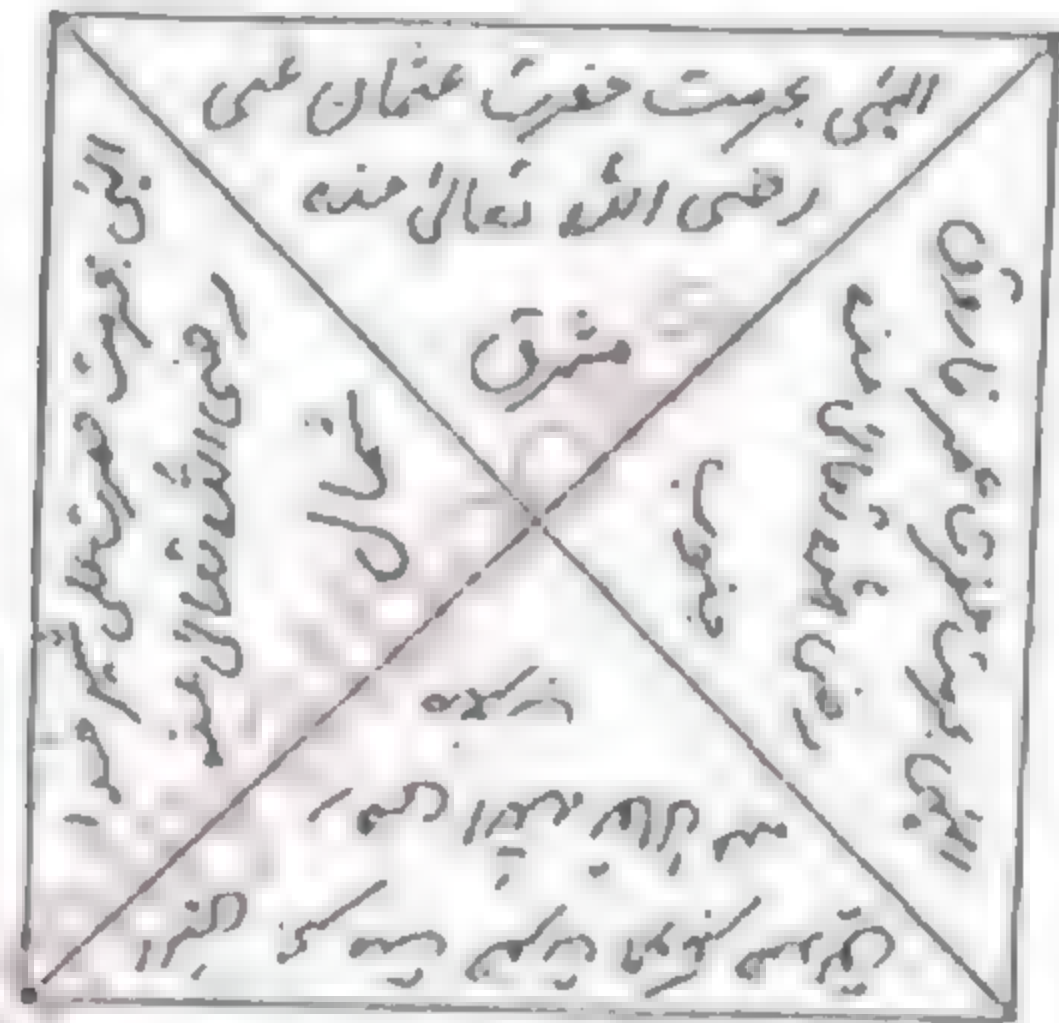 الٰہی بحرمت حضرت عثمان غنی
رضی اللہ تعالیٰ عنہ
مشرق
الٰہی بحرمت حضرت عمر فاروق
رضی اللہ تعالیٰ عنہ
جنوب
الٰہی بحرمت حضرت ابوبکر صدیق
رضی اللہ تعالیٰ عنہ
مغرب
الٰہی بحرمت حضرت علی شیر خدا
رضی اللہ تعالیٰ عنہ
شمال